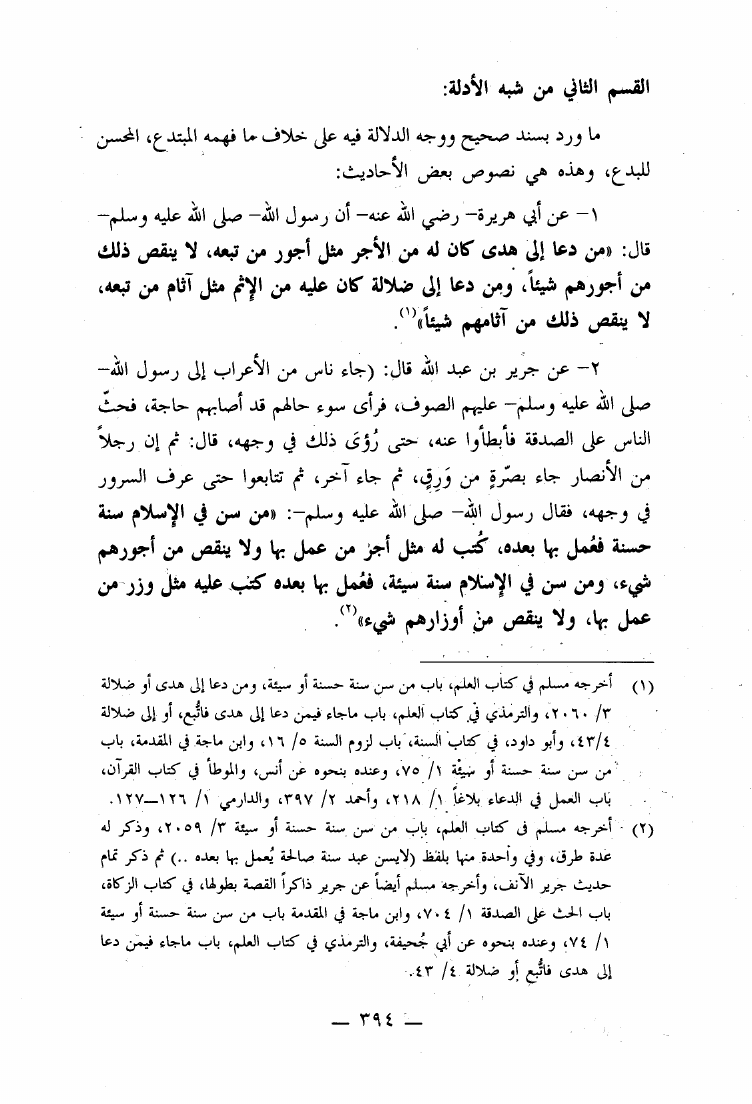 القسم الثاني من شبه الأدلة:
ما ورد بسند صحيح ووجه الدلالة فيه على خلاف ما فهمه المبتدع، المحسن
للبدع، وهذه هي نصوص بعض الأحاديث:
١- عن أبي هريرة- رضي الله عنه- أن رسول الله- صلى الله عليه وسلم-
قال: «من دعا إلى هدى كان له من الأجر مثل أجور من تبعه، لا ينقص ذلك
من أجورهم شيئاً، ومن دعا إلى ضلالة كان عليه من الإثم مثل آثام من تبعه،
لا ينقص ذلك من آثامهم شيئاً»(١).
٢- عن جرير بن عبد الله قال: (جاء ناس من الأعراب إلى رسول الله-
صلى الله عليه وسلم- عليهم الصوف، فرأى سوء حالهم قد أصابهم حاجة، فحثّ
الناس على الصدقة فأبطأوا عنه، حتى رُؤىَ ذلك في وجهه، قال: ثم إن رجلاً
من الأنصار جاء بصّرةٍ من وَرِقٍ، ثم جاء آخر، ثم تتابعوا حتى عرف السرور
في وجهه، فقال رسول الله- صلى الله عليه وسلم-: «من سن في الإسلام سنة
حسنة فعُمل بها بعده، كُتب له مثل أجر من عمل بها ولا ينقص من أجورهم
شيء، ومن سن في الإسلام سنة سيئة، فعُمل بها بعده كتب عليه مثل وزر من
عمل بها، ولا ينقص من أوزارهم شيء»(٢).
(١) أخرجه مسلم في كتاب العلم، باب من سن سنة حسنة أو سيئة، ومن دعا إلى هدى أو ضلالة
٣/ ٢٠٦٠، والترمذي في كتاب العلم، باب ماجاء فيمن دعا إلى هدى فاتُّبع، أو إلى ضلالة
٤٣/٤، وأبو داود، في كتاب السنة، باب لزوم السنة ٥/ ١٦، وابن ماجة في المقدمة، باب
من سن سنة حسنة أو سيئة ١/ ٧٥، وعنده بنحوه عن أنس، والموطأ في كتاب القرآن،
باب العمل في الدعاء بلاغاً ١/ ٢١٨، وأحمد ٢/ ٣٩٧، والدارمي ١/ ١٢٦—١٢٧.
(٢) أخرجه مسلم فى كتاب العلم، باب من سن سنة حسنة أو سيئة ٣/ ٢٠٥٩، وذكر له
عدة طرق، وفي واحدة منها بلفظ (لايسن عبد سنة صالحة يُعمل بها بعده ..) ثم ذكر تمام
حديث جرير الآنف، وأخرجه مسلم أيضاً عن جرير ذاكراً القصة بطولها، في كتاب الزكاة،
باب الحث على الصدقة ١/ ٧٠٤، وابن ماجة في المقدمة باب من سن سنة حسنة أو سيئة
١/ ٧٤، وعنده بنحوه عن أبي جُحيفة، والترمذي في كتاب العلم، باب ماجاء فيمن دعا
إلى هدى فاتُّبع أو ضلالة ٤/ ٤٣.
— ٣٩٤ —